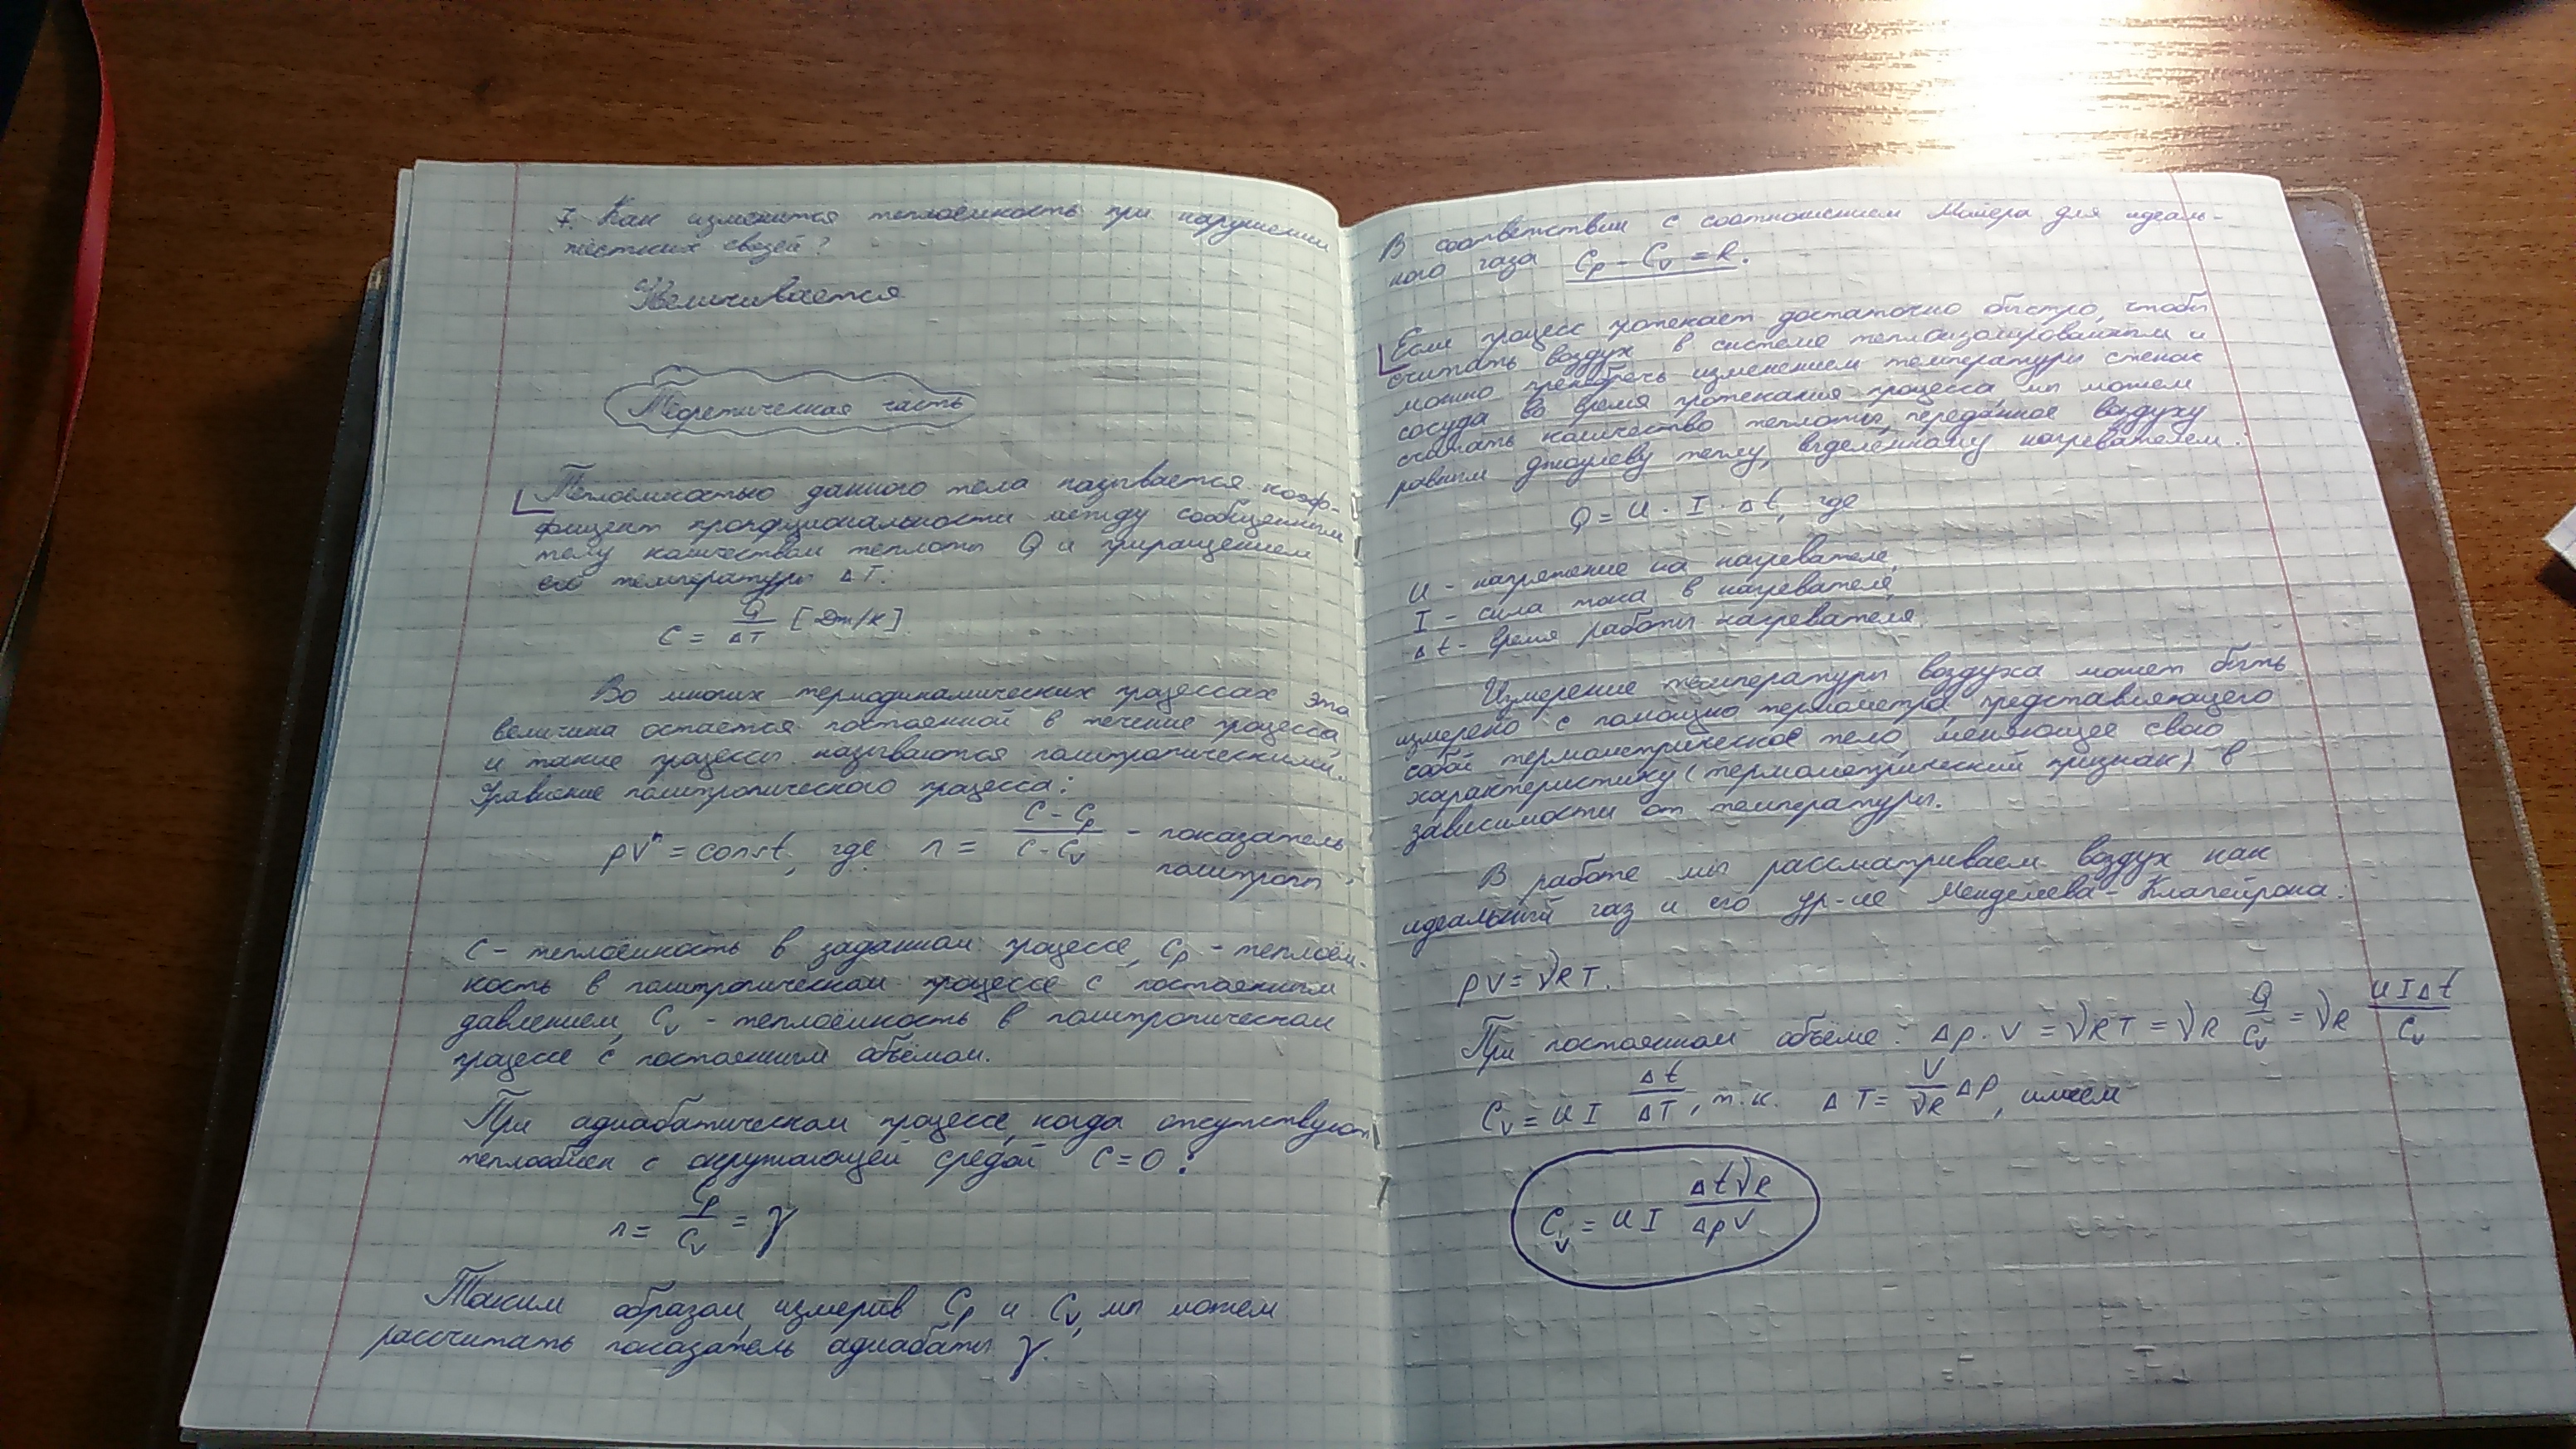 7. Как изменится теплоёмкость при нарушении
жестких связей?
Увеличивается
Теоретическая часть
Теплоёмкостью данного тела называется коэф-
фициент пропорциональности между сообщенным
телу количеством теплоты Q и приращением
его температуры ΔT:
C = Q/ΔT [Дж/К]
Во многих термодинамических процессах эта
величина остается постоянной в течение процесса,
и такие процессы называются политропическими.
Уравнение политропического процесса:
pVⁿ = const, где n = (C - Cp)/(C - Cv) - показатель
политропы,
C - теплоёмкость в заданном процессе, Cp - теплоём-
кость в политропическом процессе с постоянным
давлением, Cv - теплоёмкость в политропическом
процессе с постоянным объёмом.
При адиабатическом процессе, когда отсутствует
теплообмен с окружающей средой C=0:
n = Cp/Cv = γ
Таким образом, измерив Cp и Cv, мы можем
рассчитать показатель адиабаты γ.
В соответствии с соотношением Майера для идеаль-
ного газа Cp - Cv = R.
Если процесс протекает достаточно быстро, чтобы
считать воздух в системе теплоизолированным и
можно пренебречь изменением температуры стенок
сосуда во время протекания процесса мы можем
считать количество теплоты, переданное воздуху
равным джоулеву теплу, выделенному нагревателем:
Q = U · I · Δt, где
U - напряжение на нагревателе,
I - сила тока в нагревателе,
Δt - время работы нагревателя.
Измерение температуры воздуха может быть
измерено с помощью термометра, представляющего
собой термометрическое тело, меняющее свою
характеристику (термометрический признак) в
зависимости от температуры.
В работе мы рассматриваем воздух как
идеальный газ и его ур-ие Менделеева-Клапейрона:
pV = νRT.
При постоянном объёме: Δp · V = νRT = νR Q/Cv = νR UIΔt/Cv
Cv = UI Δt/ΔT, т.к. ΔT = V/νR Δp, имеем
Cv = UI ΔtνR/ΔpV